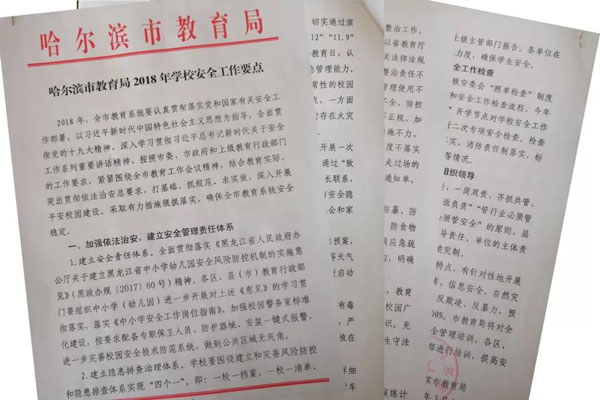 哈尔滨市教育局
哈尔滨市教育局2018年学校安全工作要点
2018年，全市教育系统要认真贯彻落实党和国家有关安全工
作部署，以习近平新时代中国特色社会主义思想为指导，全面贯
彻党的十九大精神，深入学习贯彻习近平总书记新时代关于安全
工作系列重要讲话精神，按照市委、市政府和上级教育行政部门
的工作要求，紧紧围绕全市教育工作会议精神，结合教育实际，
突出贯彻依法治安总要求，打基础，抓规范，表实效，深入开展
平安校园建设，采取有力措施狠抓落实，确保全市教育系统安全
稳定。
一、加强依法治安，建立安全管理责任体系
1.建立安全责任体系。全面贯彻落实《黑龙江省人民政府办
公厅关于建立黑龙江省中小学幼儿园安全风险防控机制的实施意
见》（黑政办规〔2017〕60号）精神。各区、县（市）教育行政部
门要组织中小学（幼儿园）进一步开展对上述《意见》的学习贯
彻落实，落实《中小学安全工作岗位指南》，加强校园警务室标准
化建设，按要求配备专职保卫人员、防护器械、安装一键式报警，
进一步完善校园安全技术防范系统，做到公共区域无死角。
2.建立隐患排查治理体系。学校要围绕建立和完善风险防控
和隐患排查体系实现“四个一”。即：一校一档案、一校一清单、
切实通过演
12”“11.9”
教育日，认
急管理能力，
常性的校园
，一方面
存在火灾
开展一次
通过“致
长联系，
有安全隐
会和家
预案，
等天气
时启动
有毒
严
放在
整治工作，
以省教育厅
关法律法规
整治责任不
管理使用不
全、防控
不正规，加
施不力、
度不落实
走过场的
通知单，
防暴、防
防食物
展应急疏
制，明确
校园广
识，充
生守法
上级主管部门报告。各单位在
力度，确保学生安全。
全工作检查
顺安委会“照单检查”制度
和安全工作检查流程，今年
开学节点对学校安全工作
二次专项安全检查。检查
实、消防责任制落实，标
等情况。
组织领导
、一提双责，齐抓共管、
谁负责”“管行业必须管
须管安全”的原则，层
导责任、单位的主体责
究。
特点，有针对性地开展
、信息安全、自然灾
反欺凌、反暴力、预
0%。市教育局将对全
全管理培训。各区、
部进行培训，提高安
滨市教育局